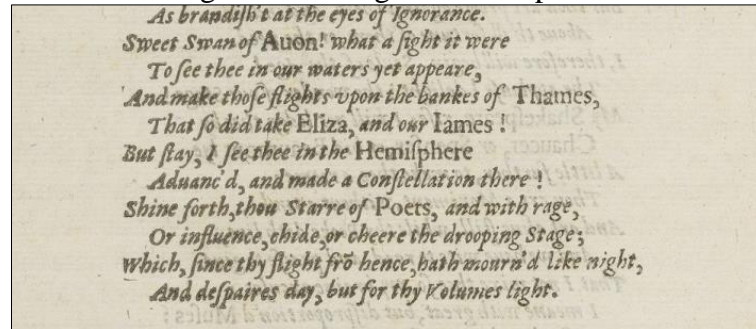 As brandiſh't at the eyes of Ignorance.
Sweet Swan of Auon! what a ſight it were
To ſee thee in our waters yet appeare,
And make thoſe flights vpon the bankes of Thames,
That ſo did take Eliza, and our Iames !
But ſtay, I ſee thee in the Hemiſphere
Aduanc'd, and made a Conſtellation there !
Shine forth, thou Starre of Poets, and with rage,
Or influence, chide, or cheere the drooping Stage;
Which, ſince thy flight frõ hence, hath mourn'd like night,
And deſpaires day, but for thy Volumes light.